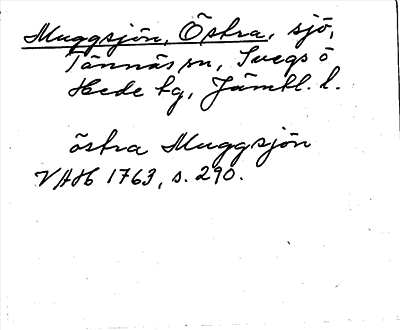 Muggsjön, Östra, sjö,
Tännäs sn, Svegs o
Hede tg, Jämtl. l.
östra Muggsjön
VAH 1763, s. 290.